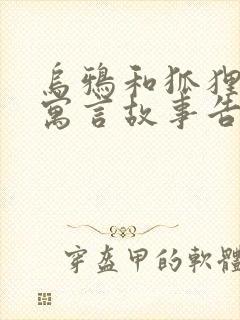 烏鴉和狐狸
寓言故事告
穿盔甲的軟體